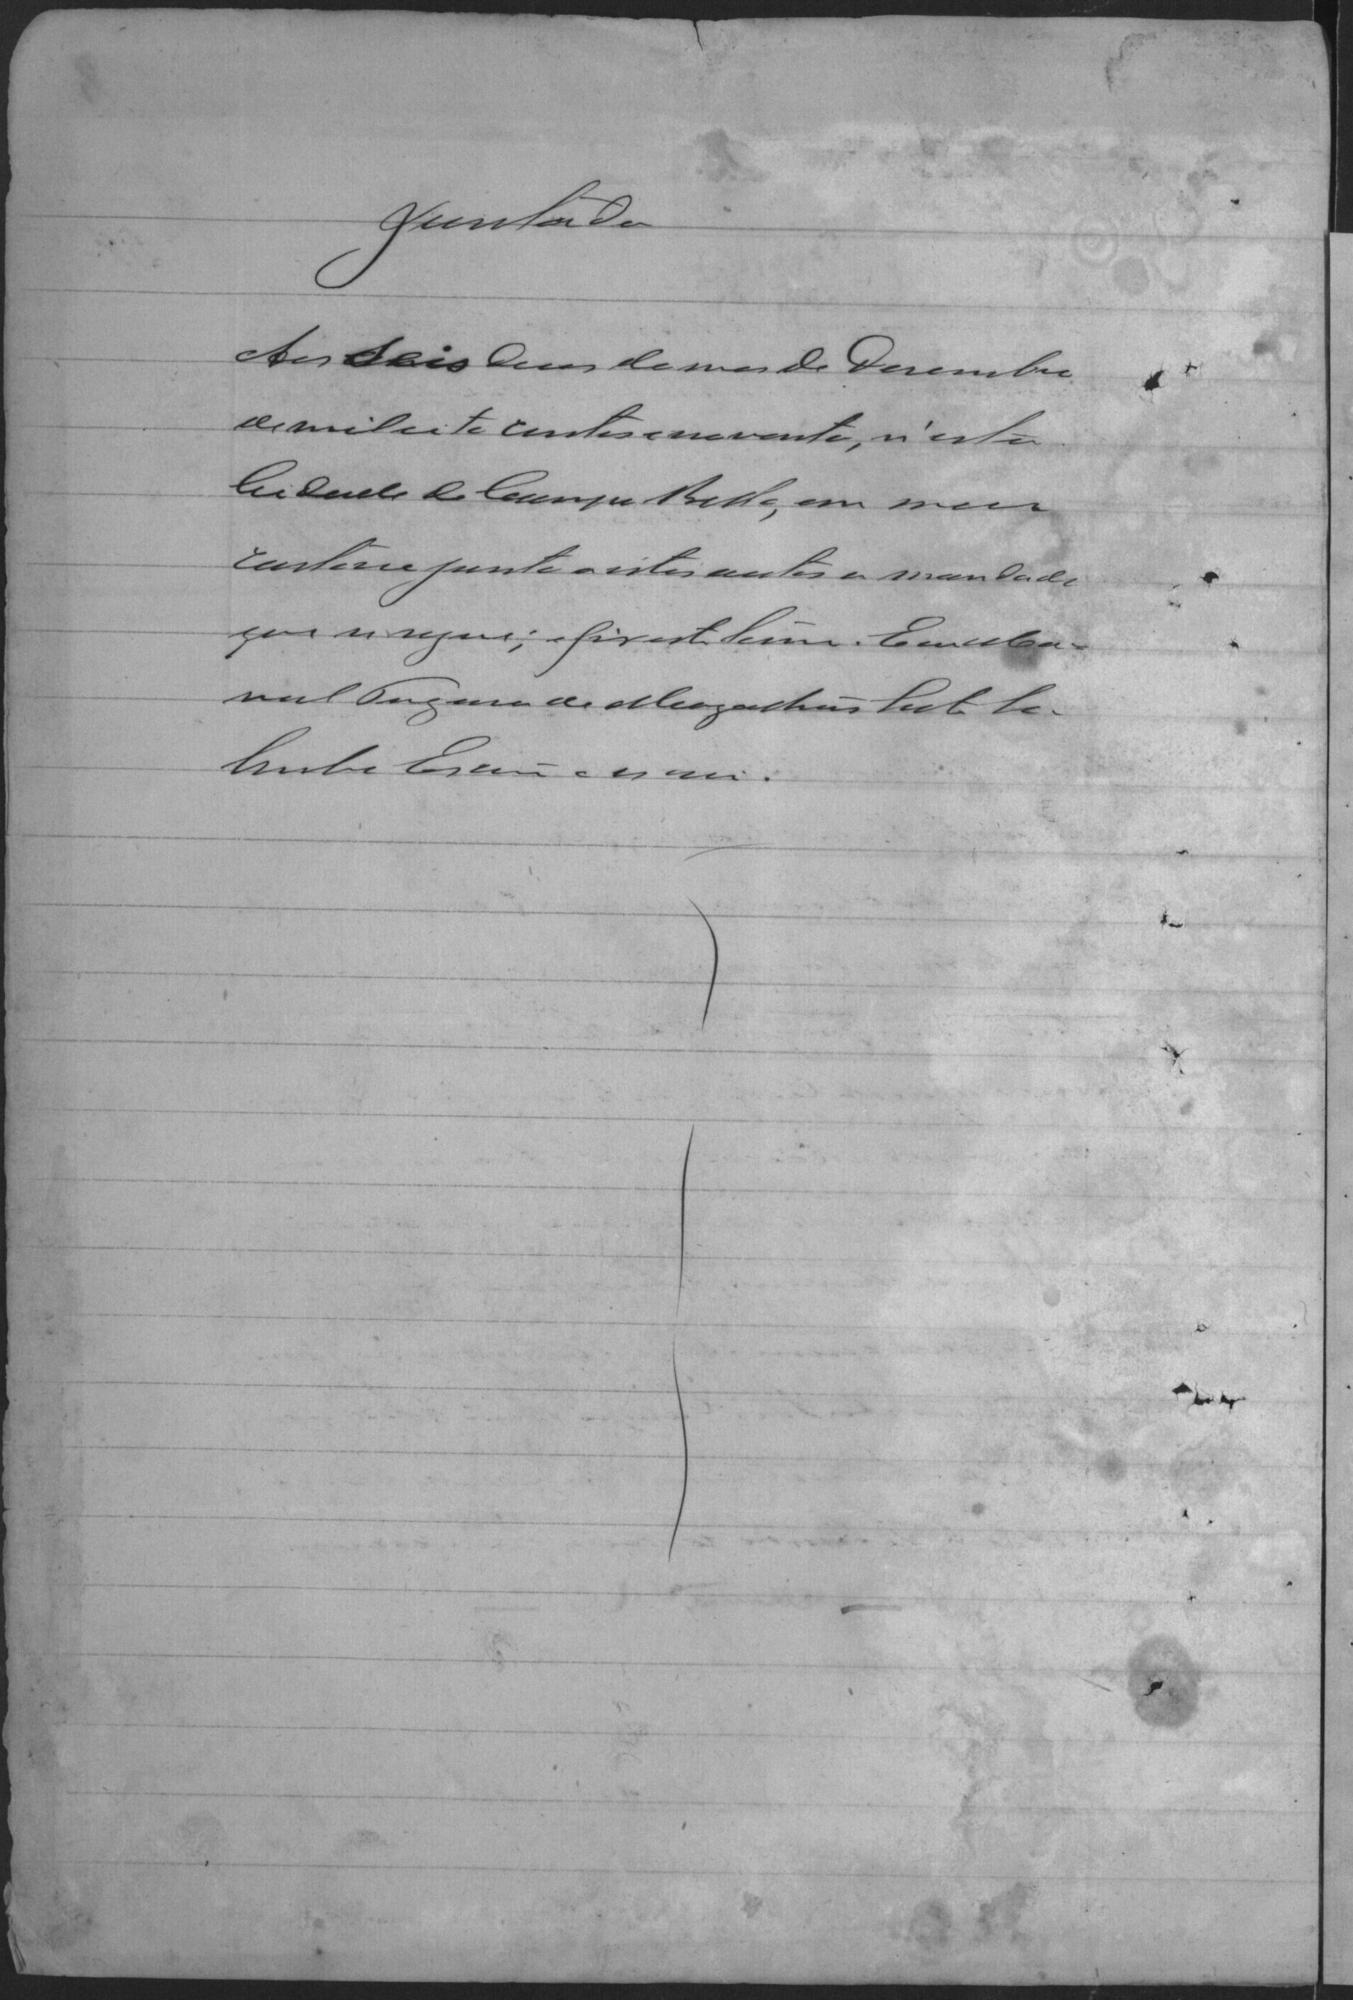 Juntada
Aos seis dias do mes de Dezembro
de mil oito centos e noventa, n'esta
Cidade de Campo Bello, em meu
cartorio junto a estes autos o mandado
que se segue; e fiz este termo. Eu Ma-
noel de
Escrivão escrevi.